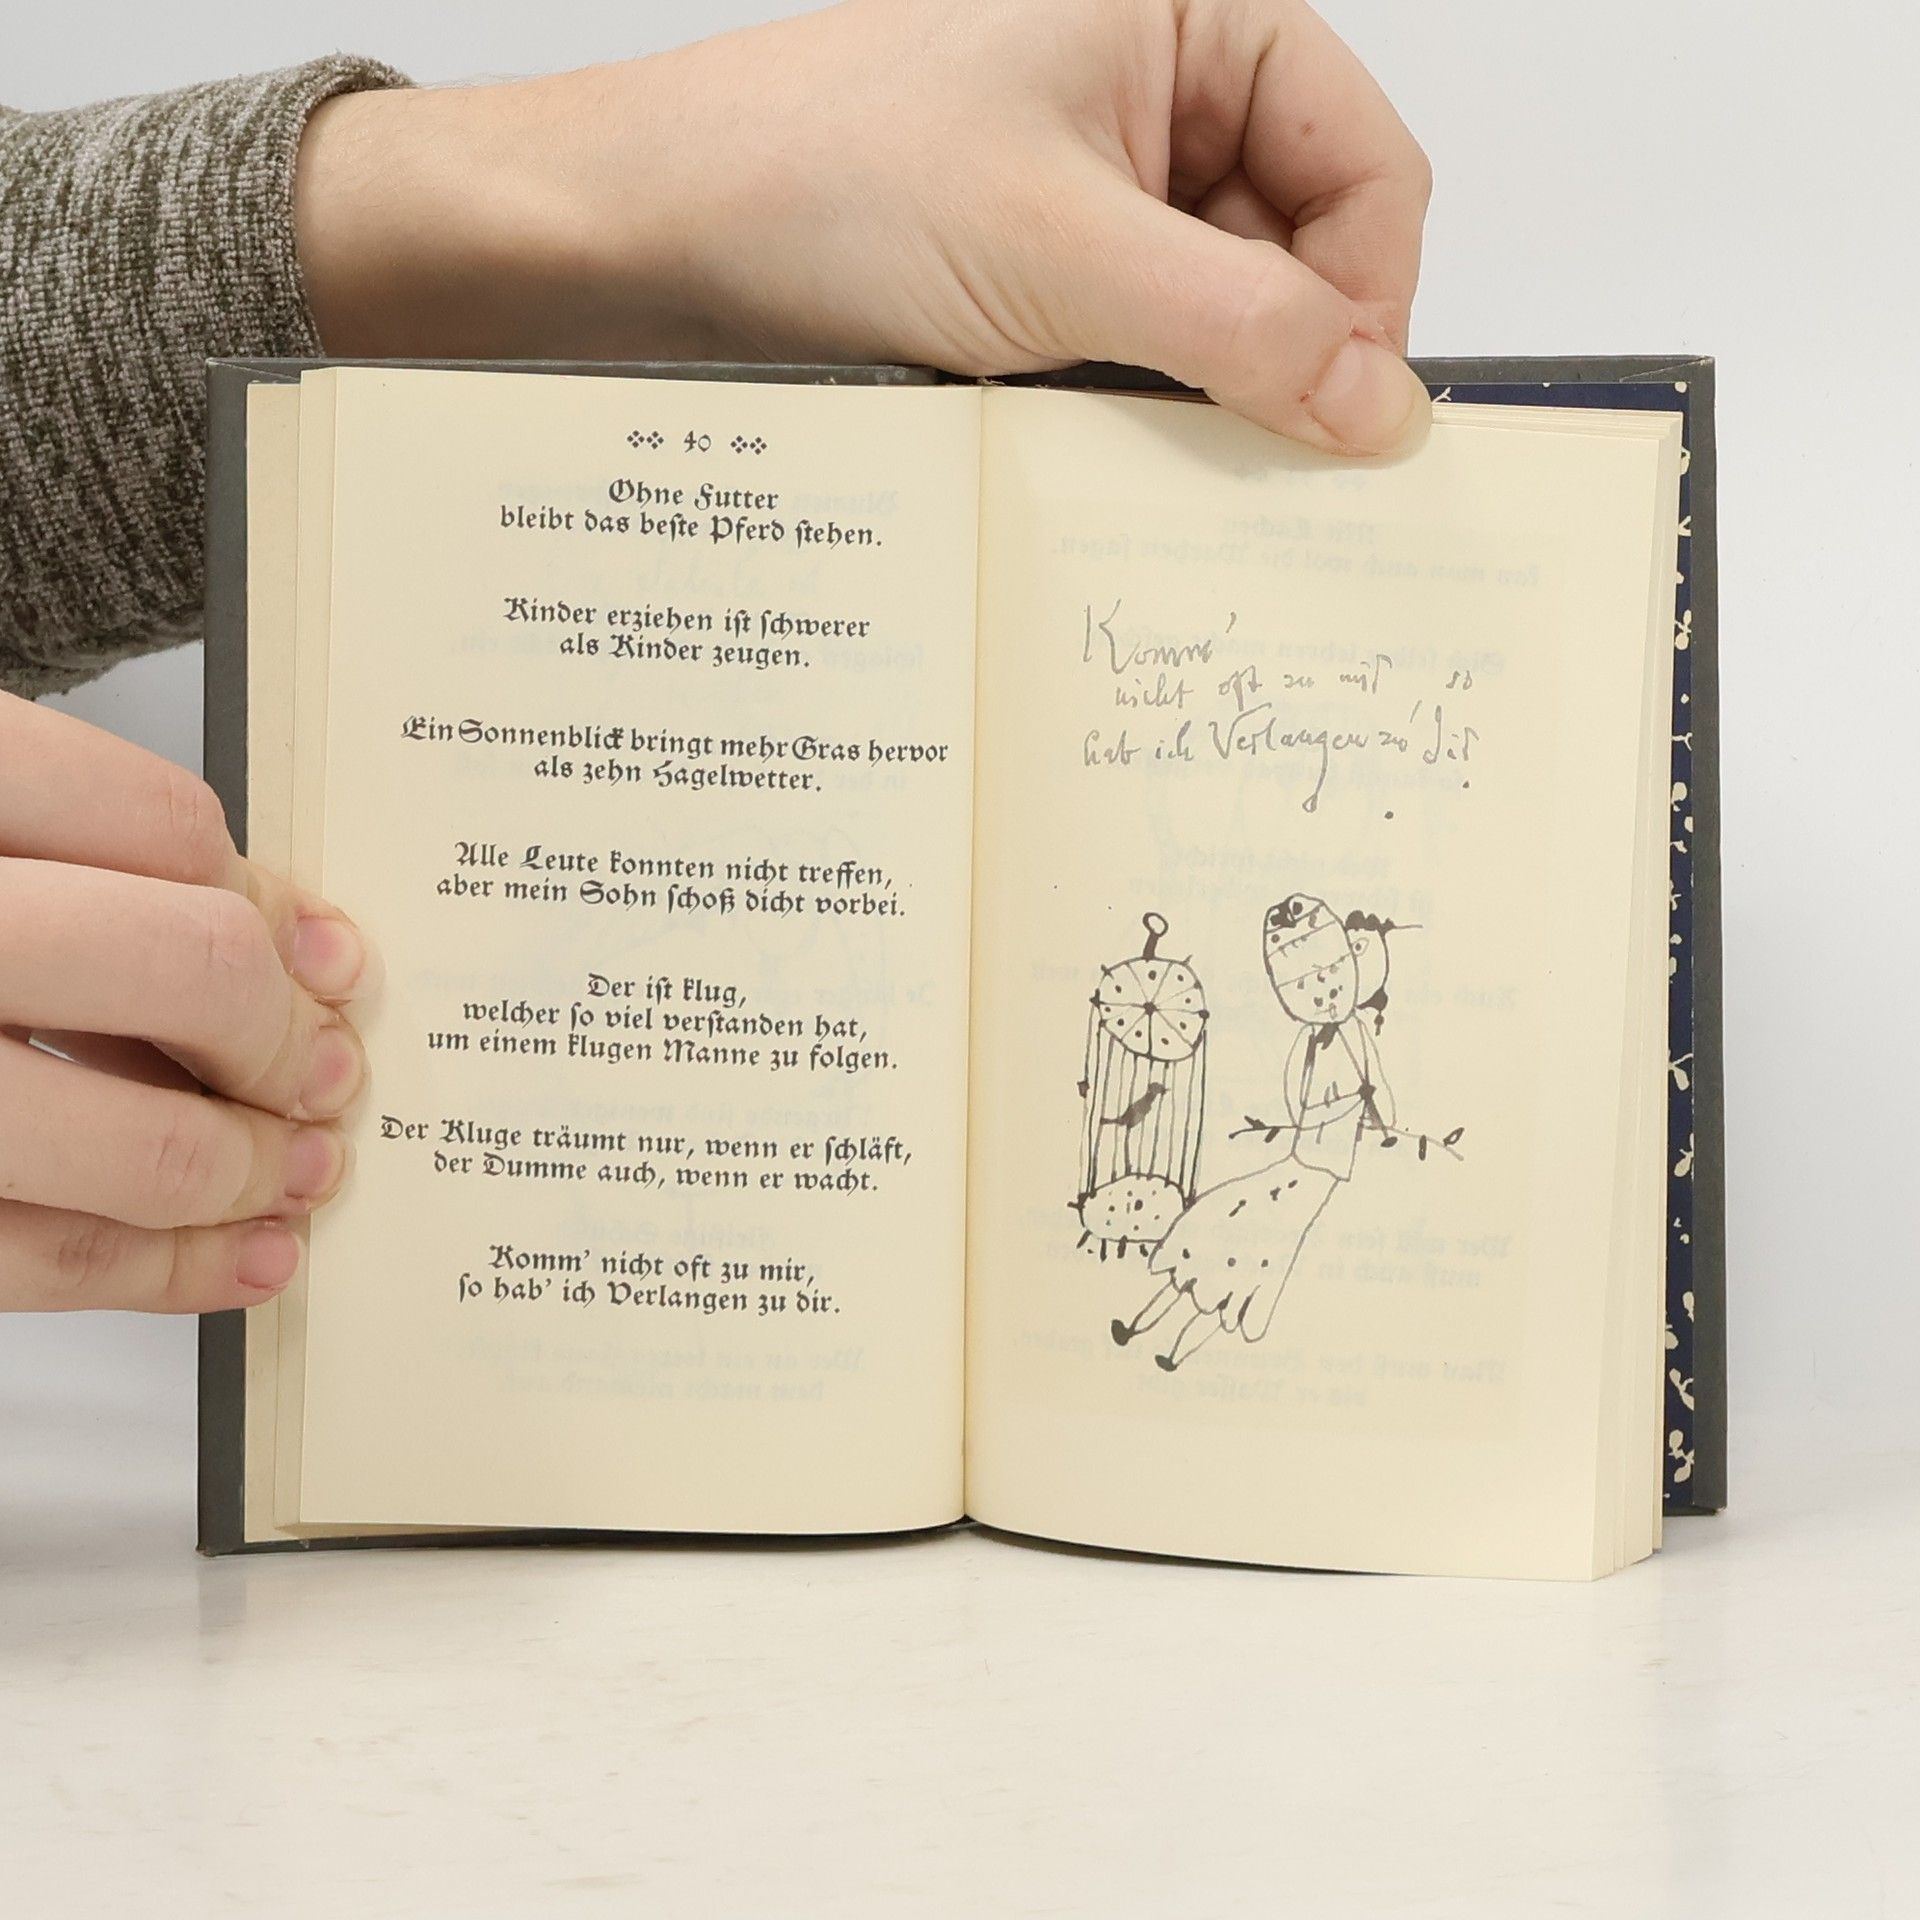 40
Ohne Futter
bleibt das beſte Pferd ſtehen.
Kinder erziehen iſt ſchwerer
als Kinder zeugen.
Ein Sonnenblick bringt mehr Gras hervor
als zehn Hagelwetter.
Alle Leute konnten nicht treffen,
aber mein Sohn ſchoß dicht vorbei.
Der iſt klug,
welcher ſo viel verſtanden hat,
um einem klugen Manne zu folgen.
Der Kluge träumt nur, wenn er ſchläft,
der Dumme auch, wenn er wacht.
Komm' nicht oft zu mir,
ſo hab' ich Verlangen zu dir.
Komm'
nicht oft zu mir so
hab ich Verlangen zu dir.